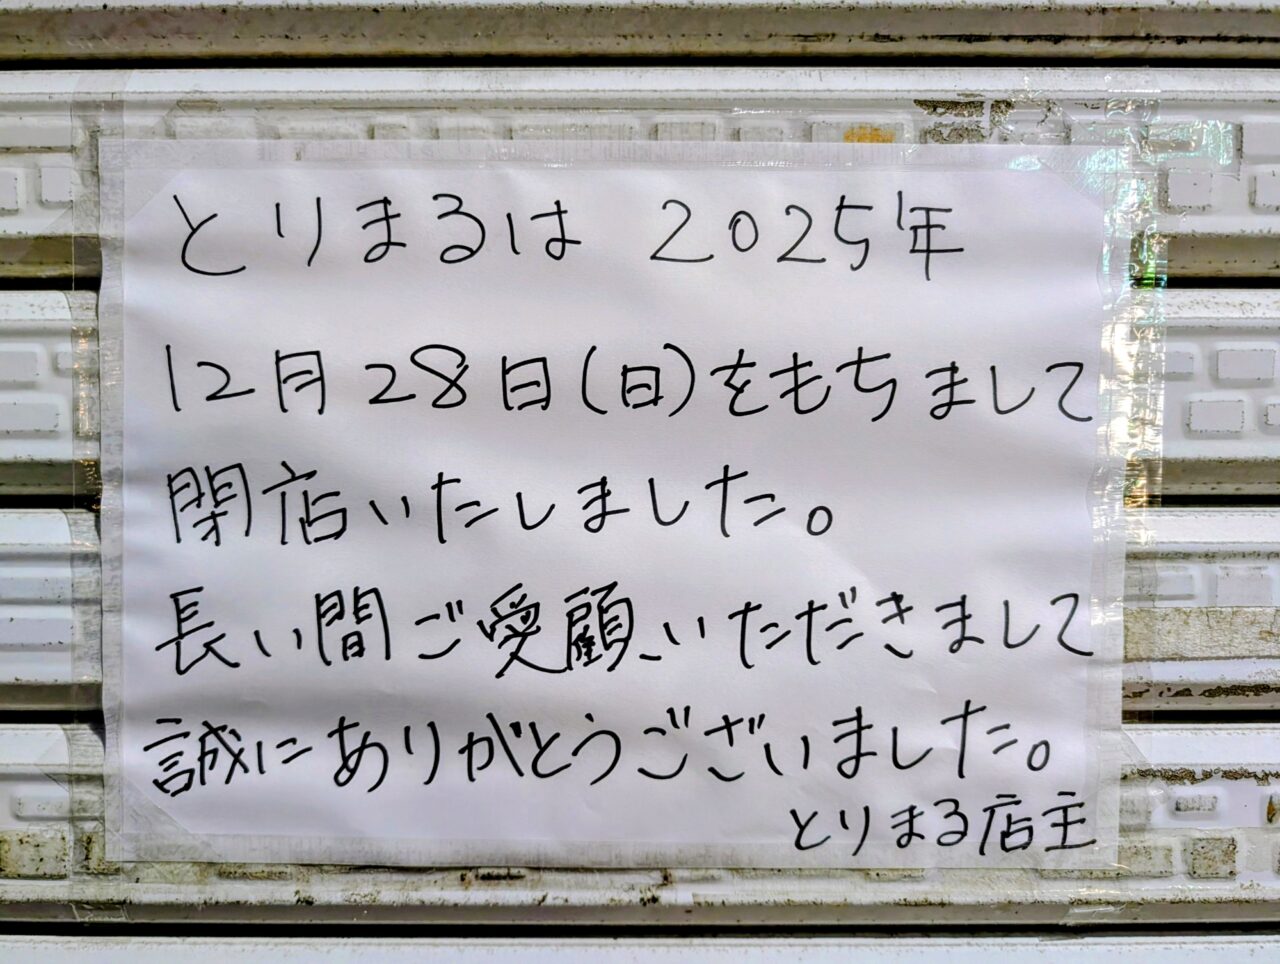 とりまるは 2025年
12月28日(日)をもちまして
閉店いたしました。
長い間ご愛顧いただきまして
誠にありがとうございました。
とりまる店主